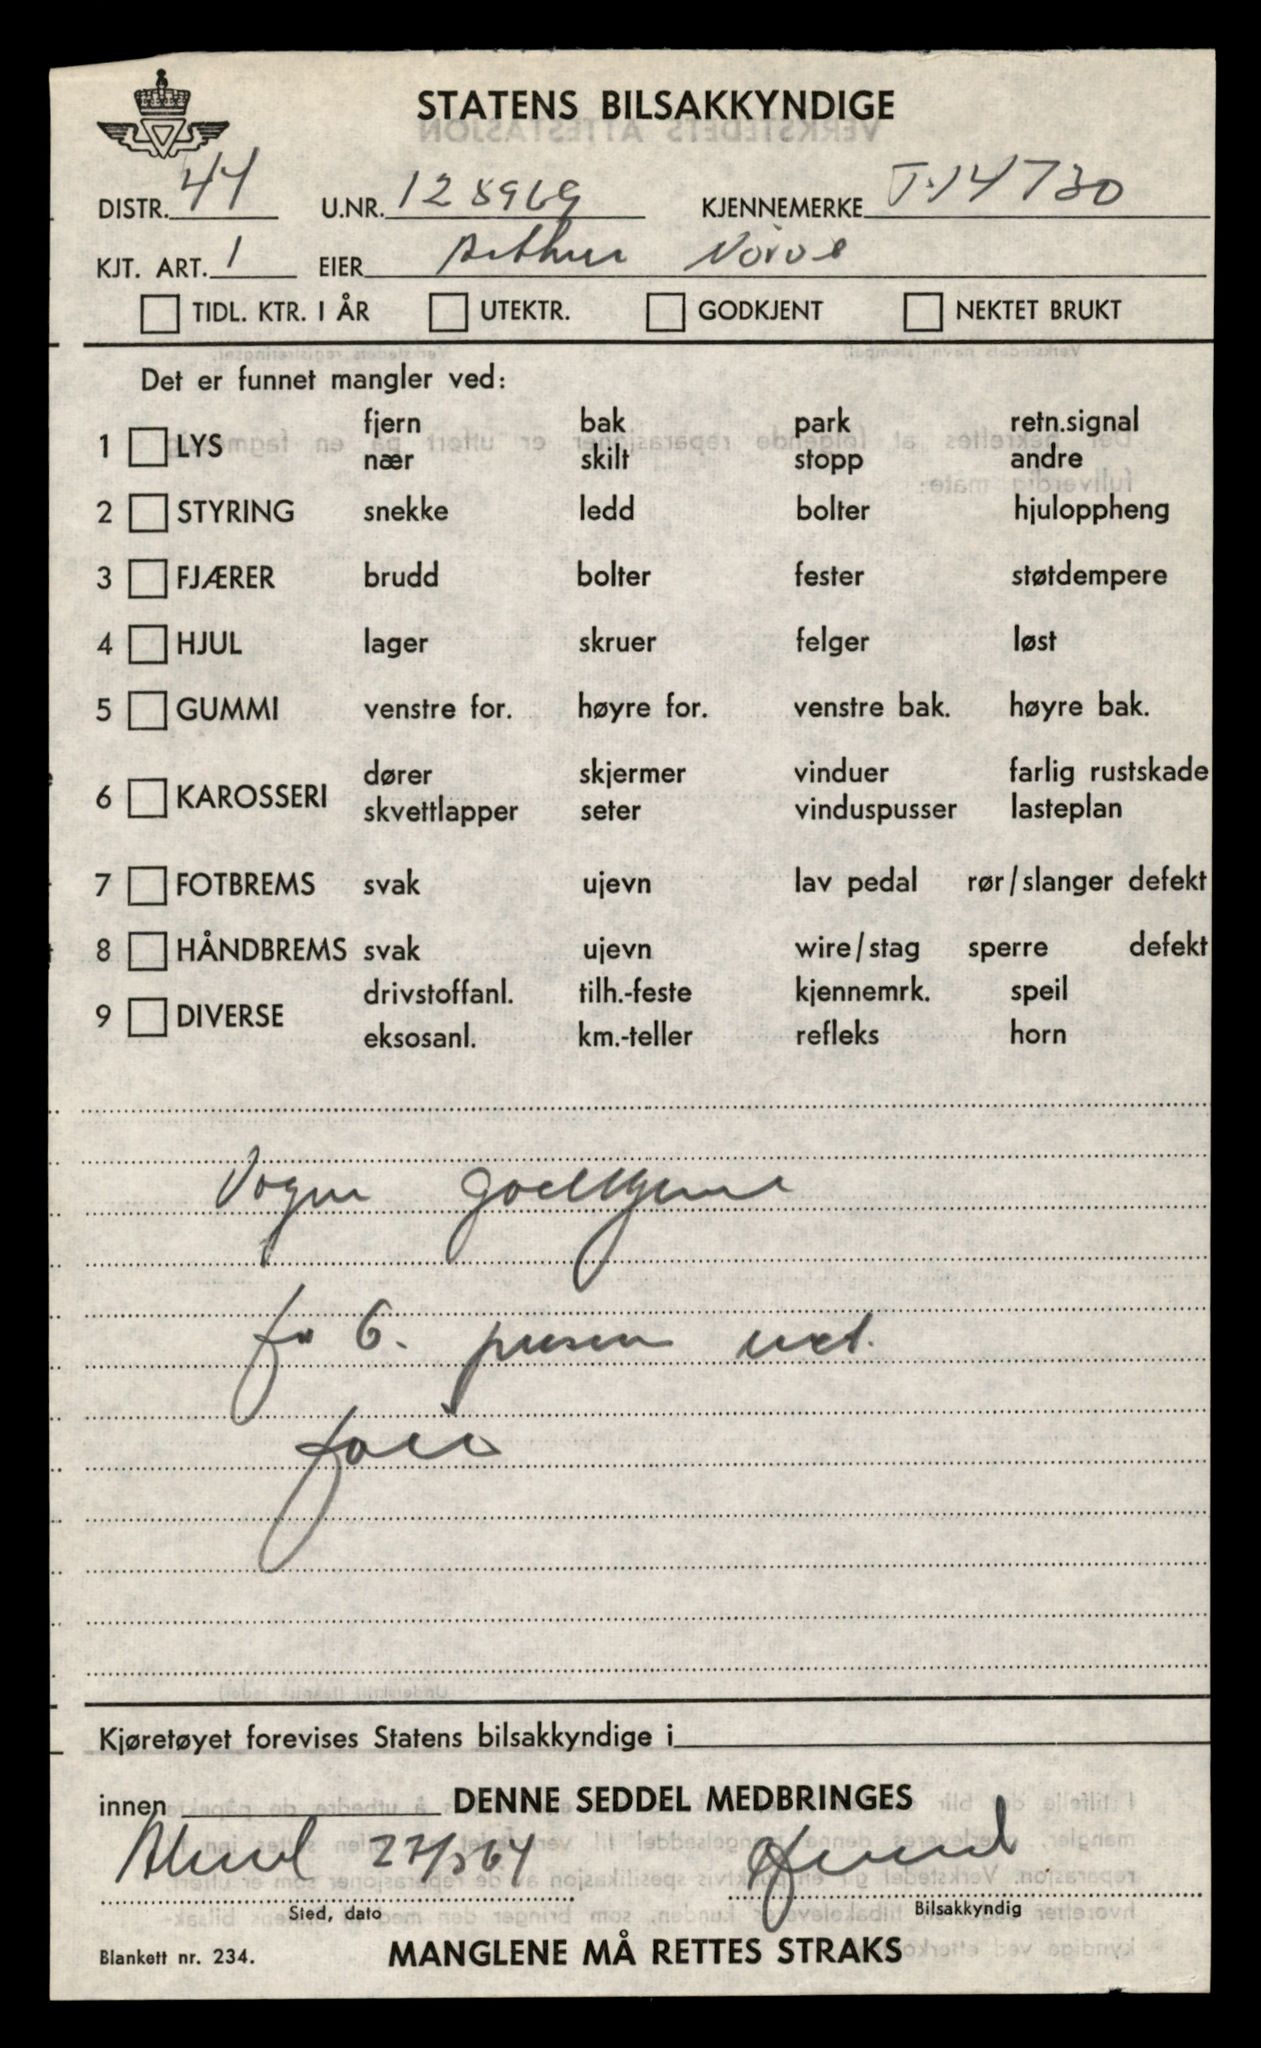 STATENS BILSAKKYNDIGE
DISTR. 44 U.NR. 128969 KJENNEMERKE T-14730
KJT. ART. 1 EIER Arthur
TIDL. KTR. I ÅR UTEKTR. GODKJENT NEKTET BRUKT
Det er funnet mangler ved:
fjern bak park retn.signal
1 LYS
nær skilt stopp andre
2 STYRING snekke ledd bolter hjuloppheng
3 FJÆRER brudd bolter fester støtdempere
4 HJUL lager skruer felger løst
5 GUMMI venstre for. høyre for. venstre bak. høyre bak.
dører skjermer vinduer farlig rustskade
6 KAROSSERI
skvettlapper seter vinduspusser lasteplan
7 FOTBREMS svak ujevn lav pedal rør/slanger defekt
8 HÅNDBREMS svak ujevn wire/stag sperre defekt
drivstoffanl. tilh.-feste kjennemrk. speil
9 DIVERSE
eksosanl. km.-teller refleks horn
Vogn godkjent
for 6. person
Kjøretøyet forevises Statens bilsakkyndige i
innen DENNE SEDDEL MEDBRINGES
Sted, dato Bilsakkyndig
Blankett nr. 234. MANGLENE MÅ RETTES STRAKS